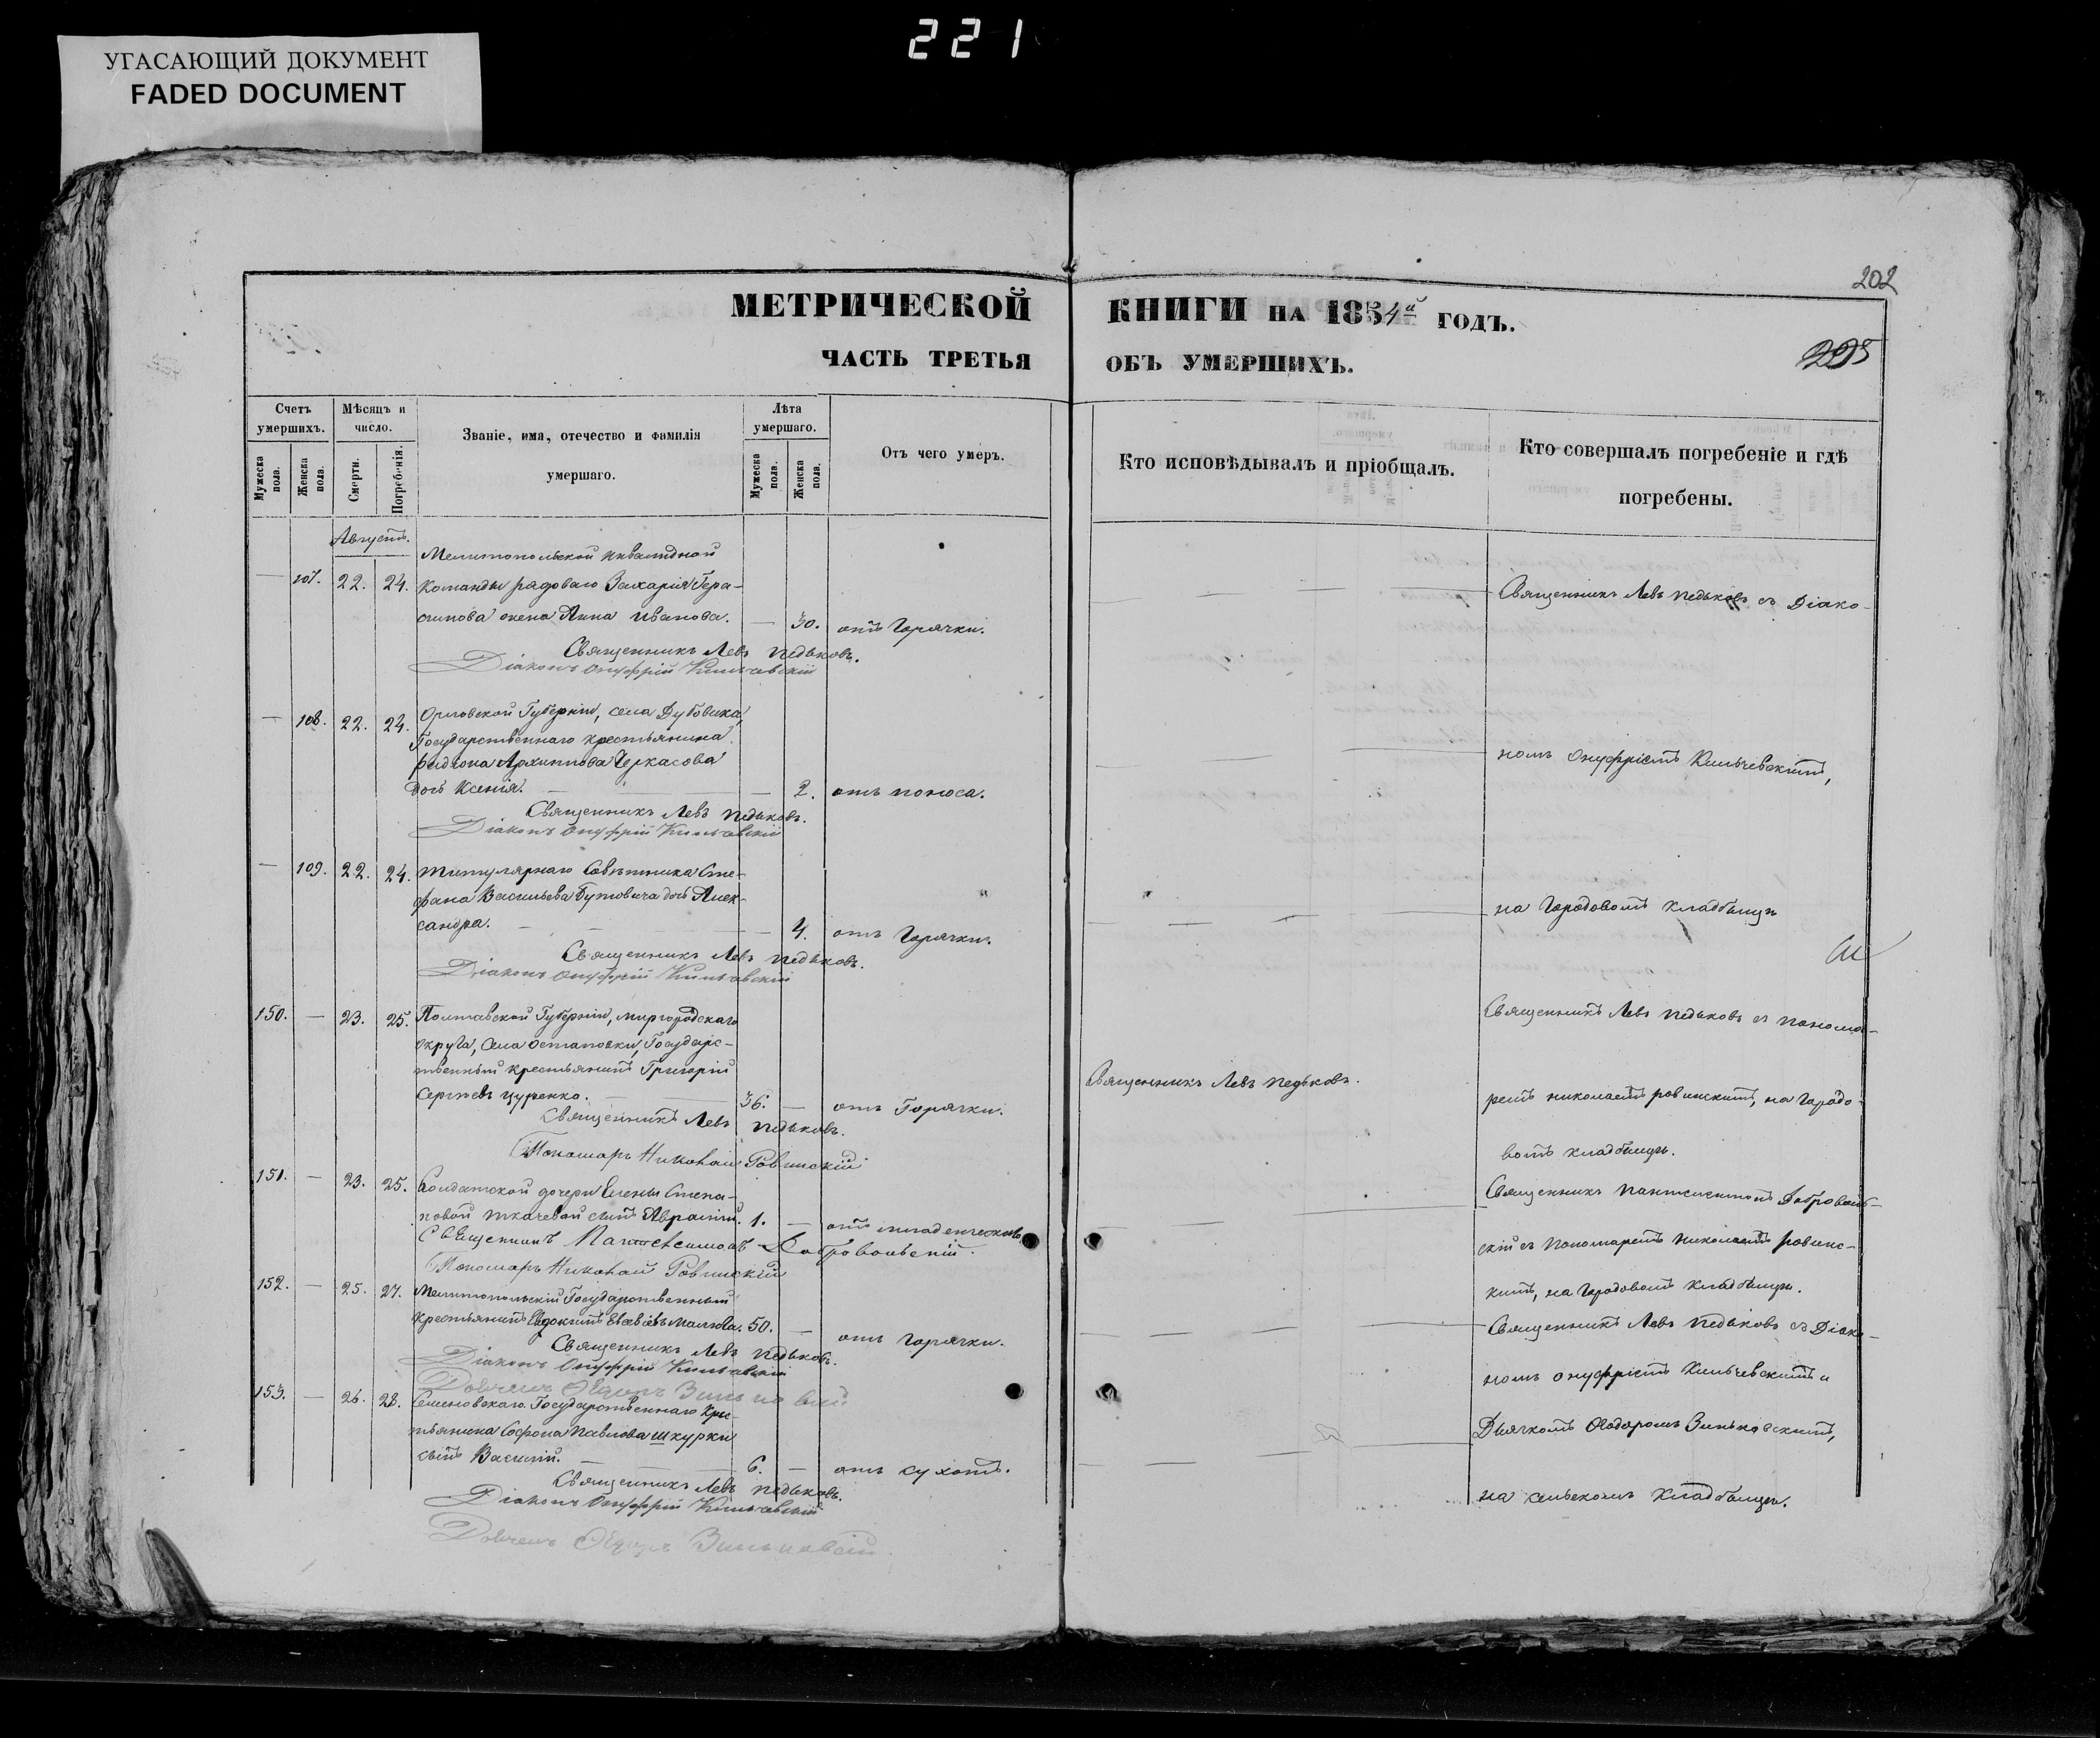 221
УГАСАЮЩИЙ ДОКУМЕНТ
FADED DOCUMENT
202
МЕТРИЧЕСКОЙ КНИГИ НА 1854й ГОДЪ.
ЧАСТЬ ТРЕТЬЯ ОБЪ УМЕРШИХЪ.
Счетъ умершихъ.
Мужеска пола.
Женска пола.
Мѣсяцъ и число.
Смерти.
Погребенія.
Званіе, имя, отечество и фамилія
умершаго.
Лѣта умершаго.
Мужеска пола.
Женска пола.
Отъ чего умеръ.
Кто исповѣдывалъ и пріобщалъ.
Кто совершалъ погребеніе и гдѣ
погребены.
Августъ.
Мелитопольской инвалидной
— 107. 22. 24. команды рядоваго Захарія Гера-
симова жена Анна Иванова. — 30. отъ Горячки.
Священникъ Левъ Педьковъ.
Діаконъ Онуфрій Кильчевскій
Священникъ Левъ Педьковъ съ Діако-
— 108. 22. 24. Орловской Губерніи, села Дубовика,
Государственнаго крестьянина
Родіона Архиппова Черкасова
дочь Ксенія. — 2. отъ поноса.
Священникъ Левъ Педьковъ.
Діаконъ Онуфрій Кильчевскій
номъ Онуфріемъ Кильчевскимъ,
— 109. 22. 24. Титулярнаго Совѣтника Сте-
фана Васильева Бутовича дочь Алек-
сандра. — 4. отъ Горячки.
Священникъ Левъ Педьковъ.
Діаконъ Онуфрій Кильчевскій
на Городовомъ кладбищѣ
150. — 23. 25. Полтавской Губерніи, Миргородскаго
округа, села Остаповки, Государс-
твенный крестьянинъ Григорій
Сергѣевъ Цуренко. — 36. — отъ Горячки.
Священникъ Левъ Педьковъ.
Пономарь Николай Ровинскій
Священникъ Левъ Педьковъ.
Священникъ Левъ Педьковъ съ Понома-
ремъ Николаемъ Ровинскимъ, на Городо-
вомъ кладбищѣ.
151. — 23. 25. Солдатской дочери Елены Степа-
новой Ткачевой сынъ Авраамій. 1. — отъ младенческой
Священникъ Пантелеимонъ Добровольскій.
Пономарь Николай Ровинскій
Священникъ Пантелеимонъ Доброволь-
скій съ Пономаремъ Николаемъ Ровинс-
кимъ, на Городовомъ кладбищѣ.
152. — 25. 27. Мелитопольскій Государственный
крестьянинъ Евдокимъ Евсевіевъ 50. — отъ Горячки.
Священникъ Левъ Педьковъ.
Діаконъ Онуфрій Кильчевскій
Священникъ Левъ Педьковъ съ Діако-
номъ Онуфріемъ Кильчевскимъ и
153. — 26. 28. Семеновскаго Государственнаго кре-
тьянина Софона Павлова Шкурки
сынъ Василій. — 6. — отъ сухотъ.
Священникъ Левъ Педьковъ.
Діаконъ Онуфрій Кильчевскій
Дьячкомъ Ѳеодоромъ Зиньковскимъ,
на сельскомъ кладбищѣ.